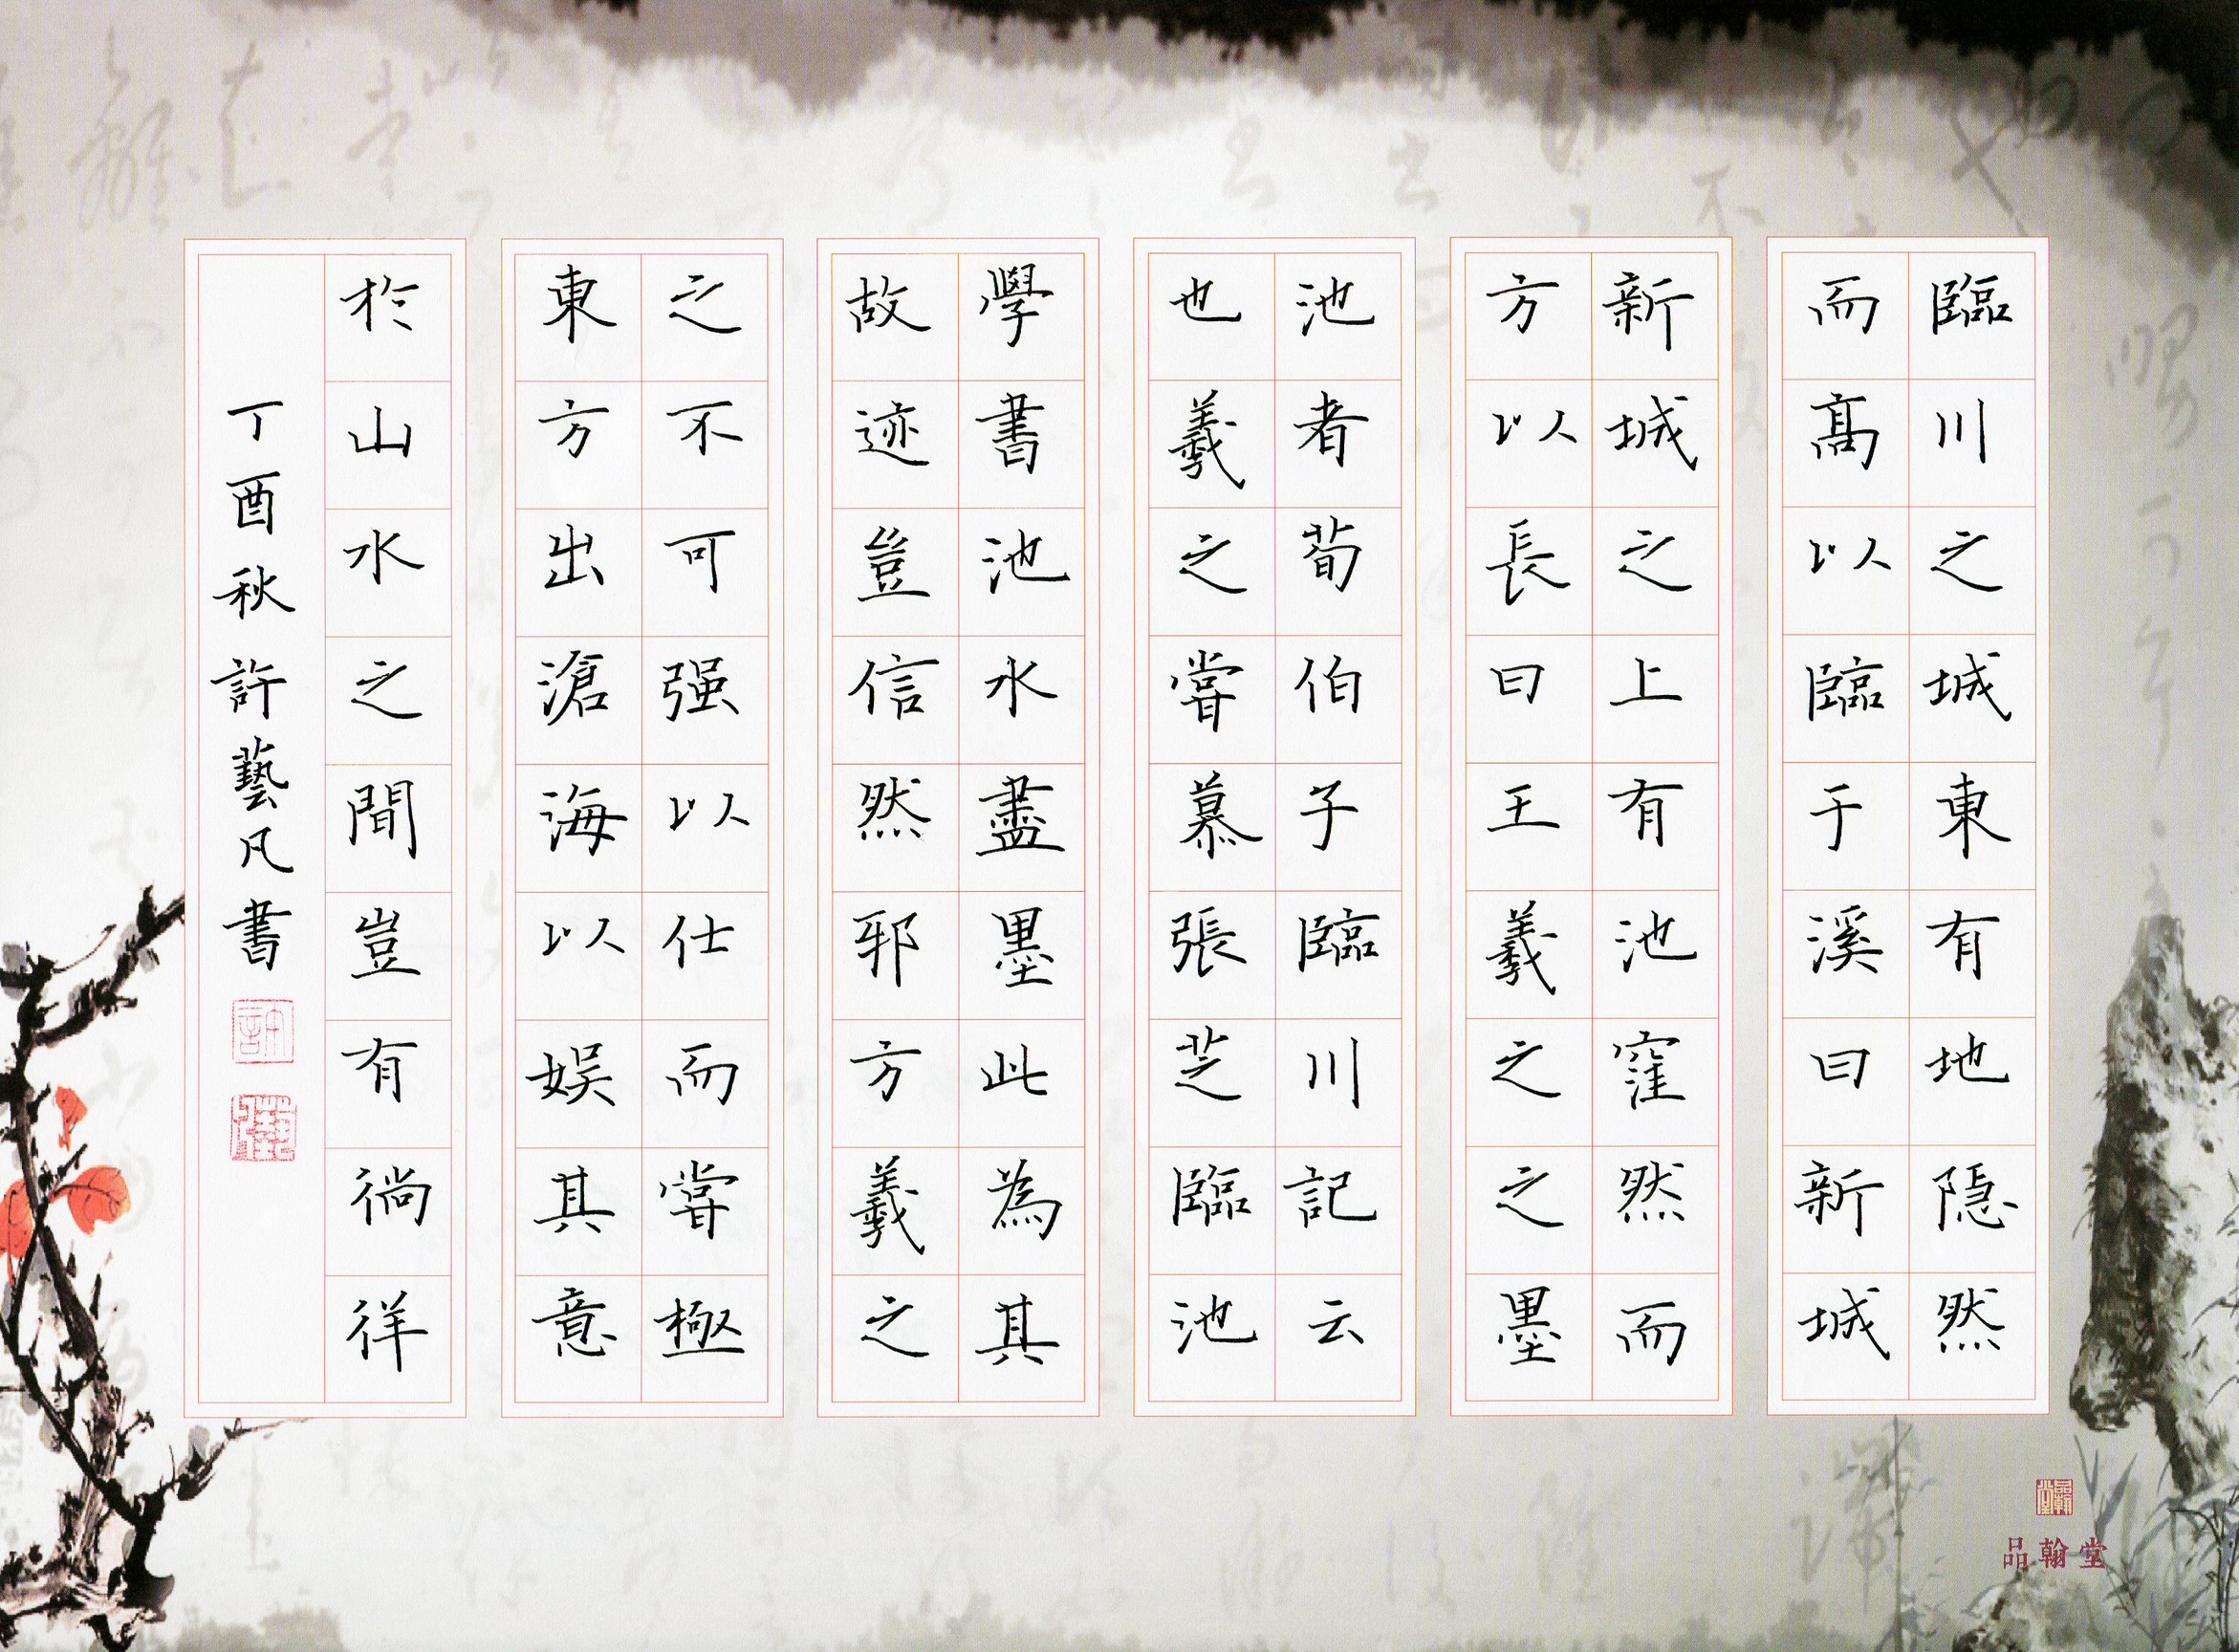 臨川之城東有地隐然
而髙以臨于溪曰新城
新城之上有池窪然而
方以長曰王羲之之墨
池者荀伯子臨川記云
也羲之嘗慕張芝臨池
學書池水盡墨此為其
故迹豈信然邪方羲之
之不可强以仕而嘗極
東方出滄海以娱其意
於山水之間豈有徜徉
丁酉秋許藝凡書
品翰堂